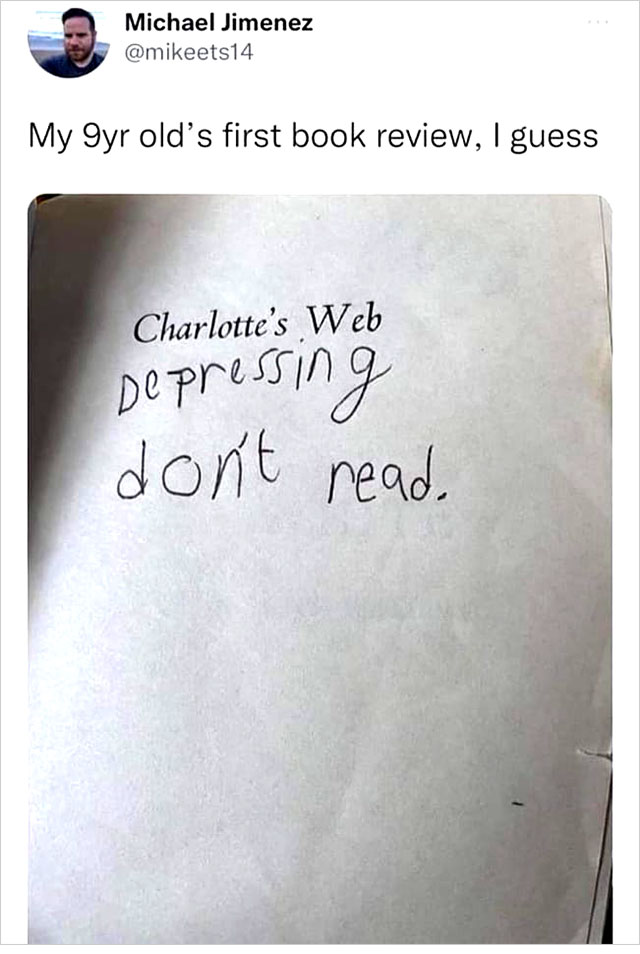 Michael Jimenez
@mikeets14
My 9yr old’s first book review, I guess
Charlotte's Web
Depressing
don't read.